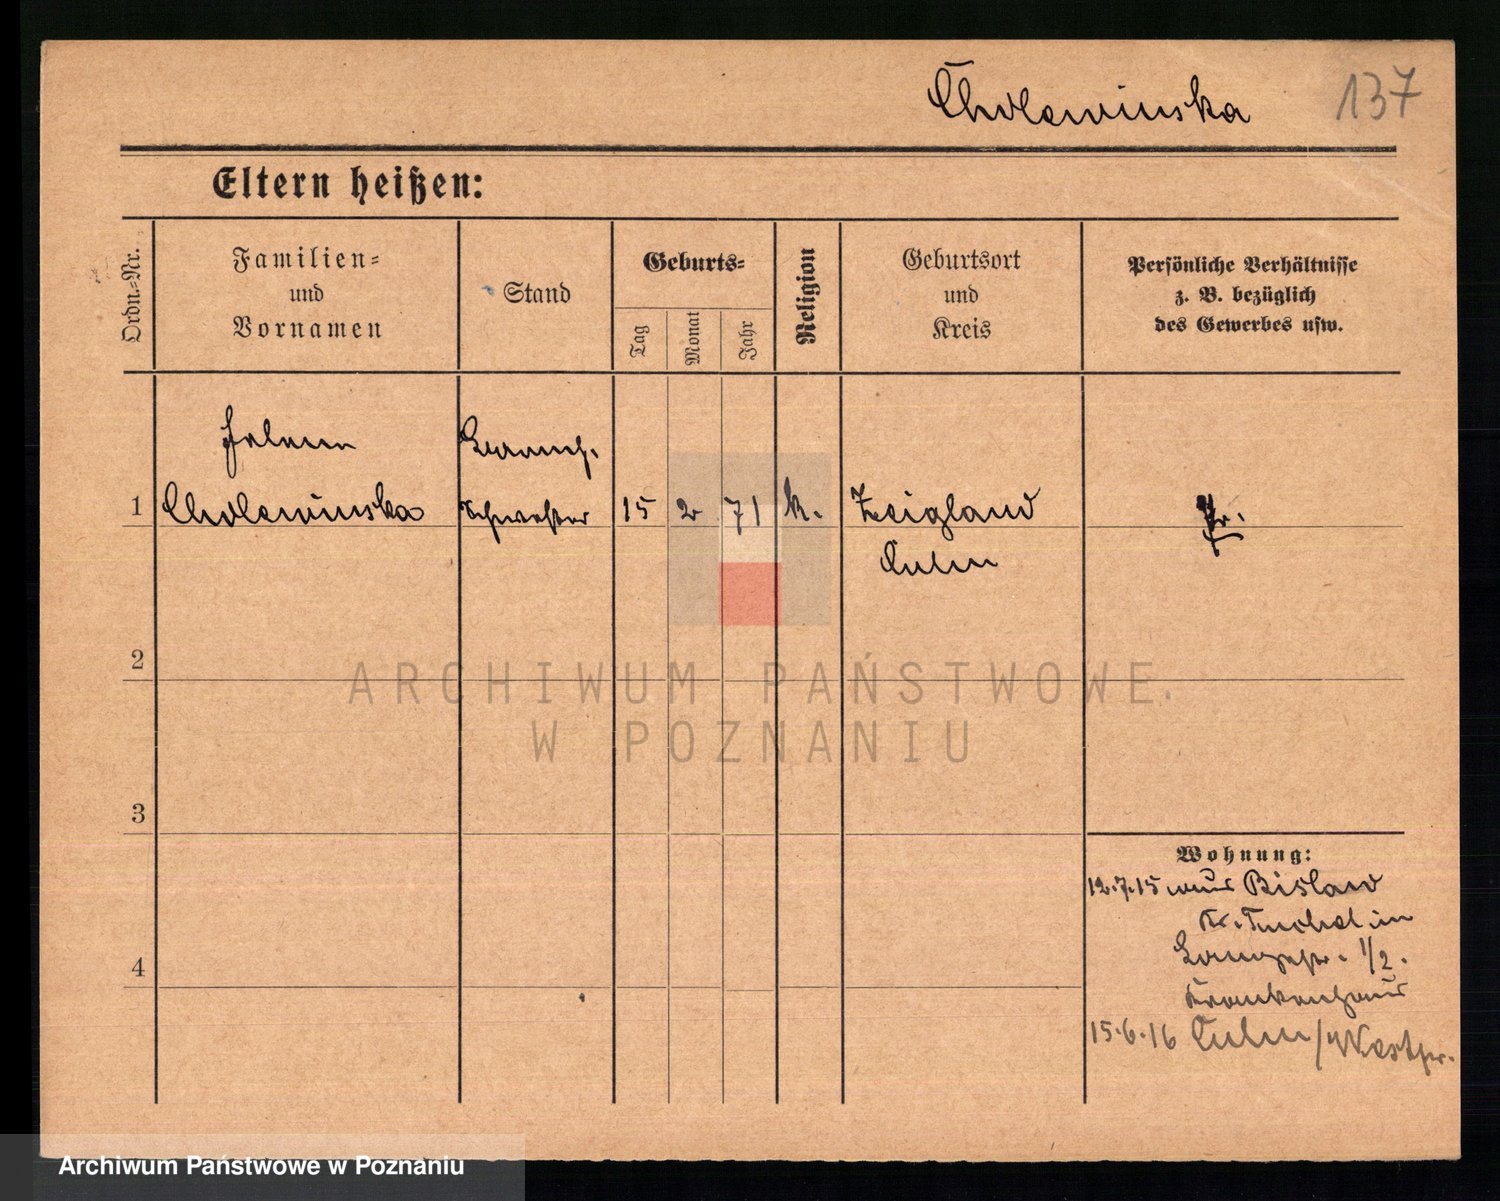 Cholewinska 137
Eltern heißen:
Ordn.-Nr.
Familien-
und
Vornamen
Stand
Geburts-
Tag
Monat
Jahr
Religion
Geburtsort
und
Kreis
Persönliche Verhältnisse
z. B. bezüglich
des Gewerbes usw.
Helene
Barmh.
1 Cholewinska Schwester 15 2 71 k. Zeigland Pr.
Culm
2
ARCHIWUM PAŃSTWOWE
W POZNANIU
3
Wohnung:
12.7.15 aus Bislaw
Kr. Tuchel in
1/2.
Krankenhaus
4
15.6.16 Culm/Westpr.
Archiwum Państwowe w Poznaniu